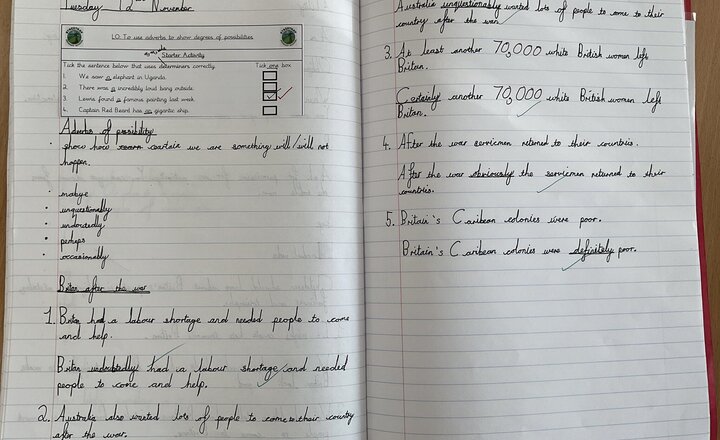 Tuesday 12 November
LO: To use adverbs to show degrees of possibilities
Starter Activity
Tick the sentence below that uses determiners correctly. Tick one box
1. We saw a elephant in Uganda.
2. There was a incredibly loud bang outside.
3. Lewis found a famous painting last week.
4. Captain Red Beard has an gigantic ship.
Adverbs of possibility
· show how certain we are something will / will not
happen.
· mabye
· unquestionably
· undoubtedly
· perhaps
· occasionally
Britan after the war
1. Britan had a labour shortage and needed people to come
and help.
Britan undoubtedly had a labour shortage and needed
people to come and help.
2. Australia also wanted lots of people to come to their country
after the war.
Australia unquestionably wanted lots of people to come to their
country after the war.
3. At least another 70,000 white British women left
Britan.
Certainly another 70,000 white British women left
Britan.
4. After the war servicmen returned to their countris.
After the war obviously the servicmen returned to their
countris.
5. Britain's Caribean colonies were poor.
Britain's Caribean colonies were definitely poor.